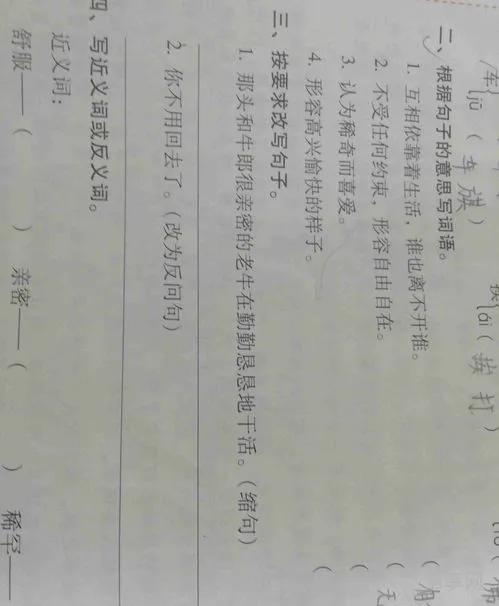 jū（车旗）
ái（挨打）
二、根据句子的意思写词语。
1. 互相依靠着生活，谁也离不开谁。（相
2. 不受任何约束，形容自由自在。（无
3. 认为稀奇而喜爱。（
4. 形容高兴愉快的样子。（
三、按要求改写句子。
1. 那头和牛郎很亲密的老牛在勤勤恳恳地干活。（缩句）
2. 你不用回去了。（改为反问句）
四、写近义词或反义词。
近义词：
舒服——（　　）亲密——（　　）稀罕——